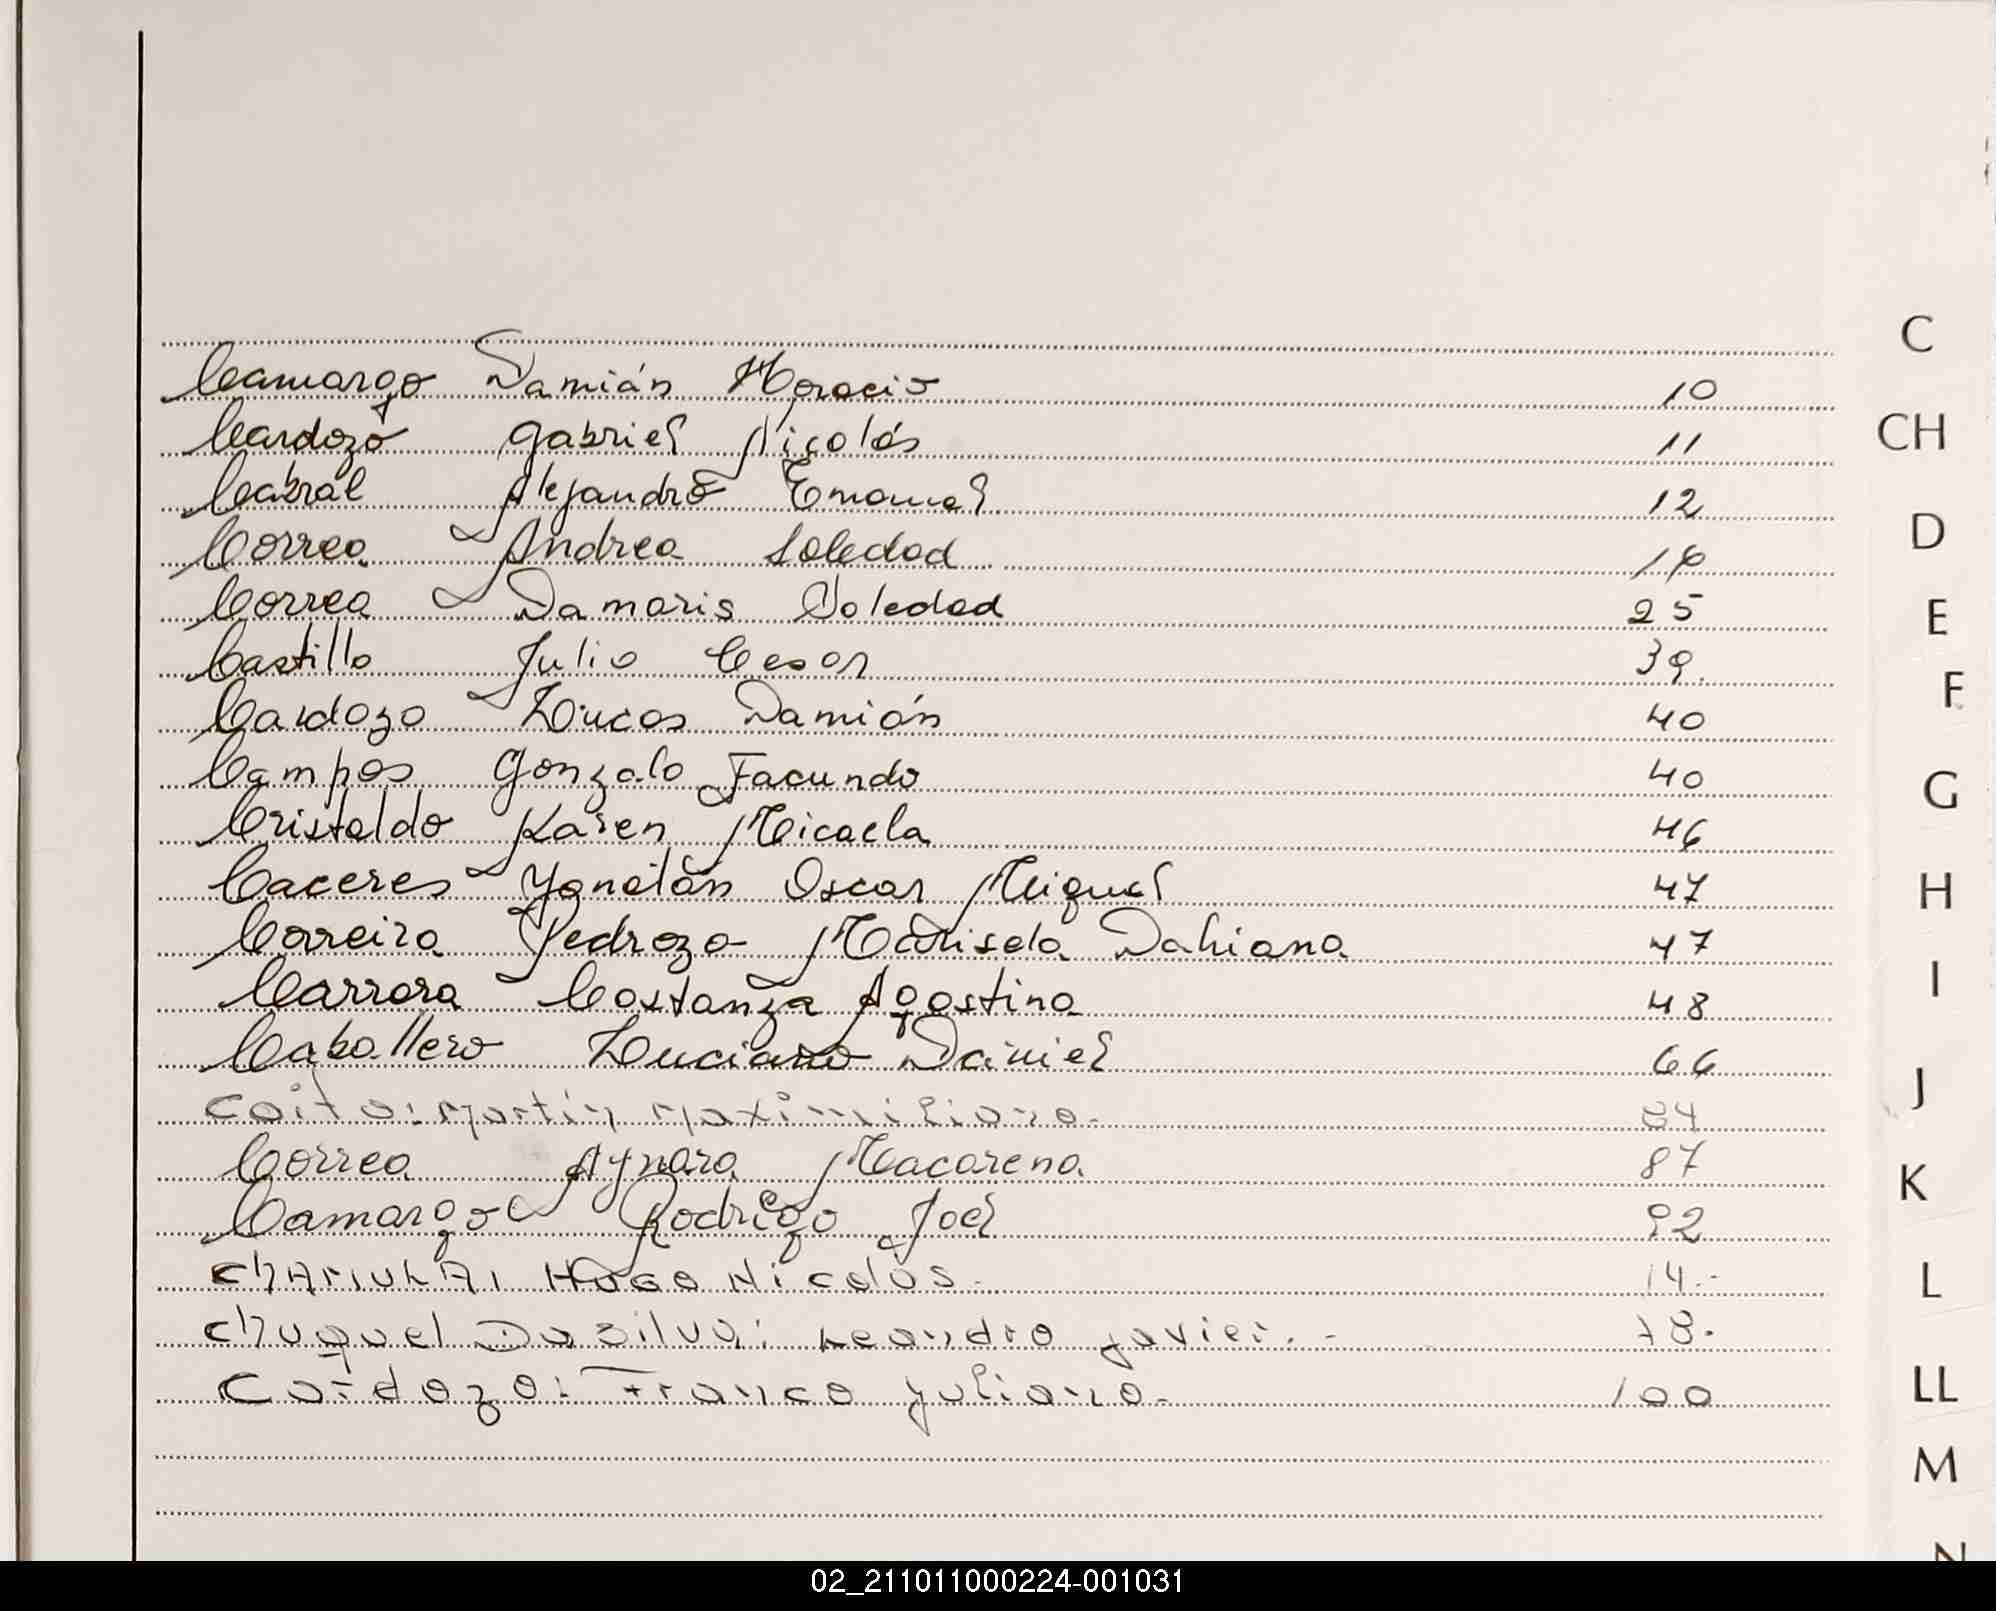 Camargo Damián Horacio 10
Cardozo Gabriel Nicolás 11
Cabral Alejandro Emanuel 12
Correa Andrea Soledad 16
Correa Damaris Soledad 25
Castillo Julio Cesar 39
Cardozo Lucas Damián 40
Campos Gonzalo Facundo 40
Cristaldo Karen Micaela 46
Caceres Yonatán Oscar Miguel 47
Correira Pedrozo Marisela Dahiana 47
Carrara Costanza Agostina 48
Caballero Luciano Daniel 66
Coito: Martin Maximiliano.- 84
Correa Aynara Macarena 87
Camargo Rodrigo Joel 92
Hugo Nicolás.- 14.-
Chuquel Da Silva: Leandro Javier.- 78.
Cardozo: Franco Juliano.- 100
C
CH
D
E
F
G
H
I
J
K
L
LL
M
N
02_211011000224-001031